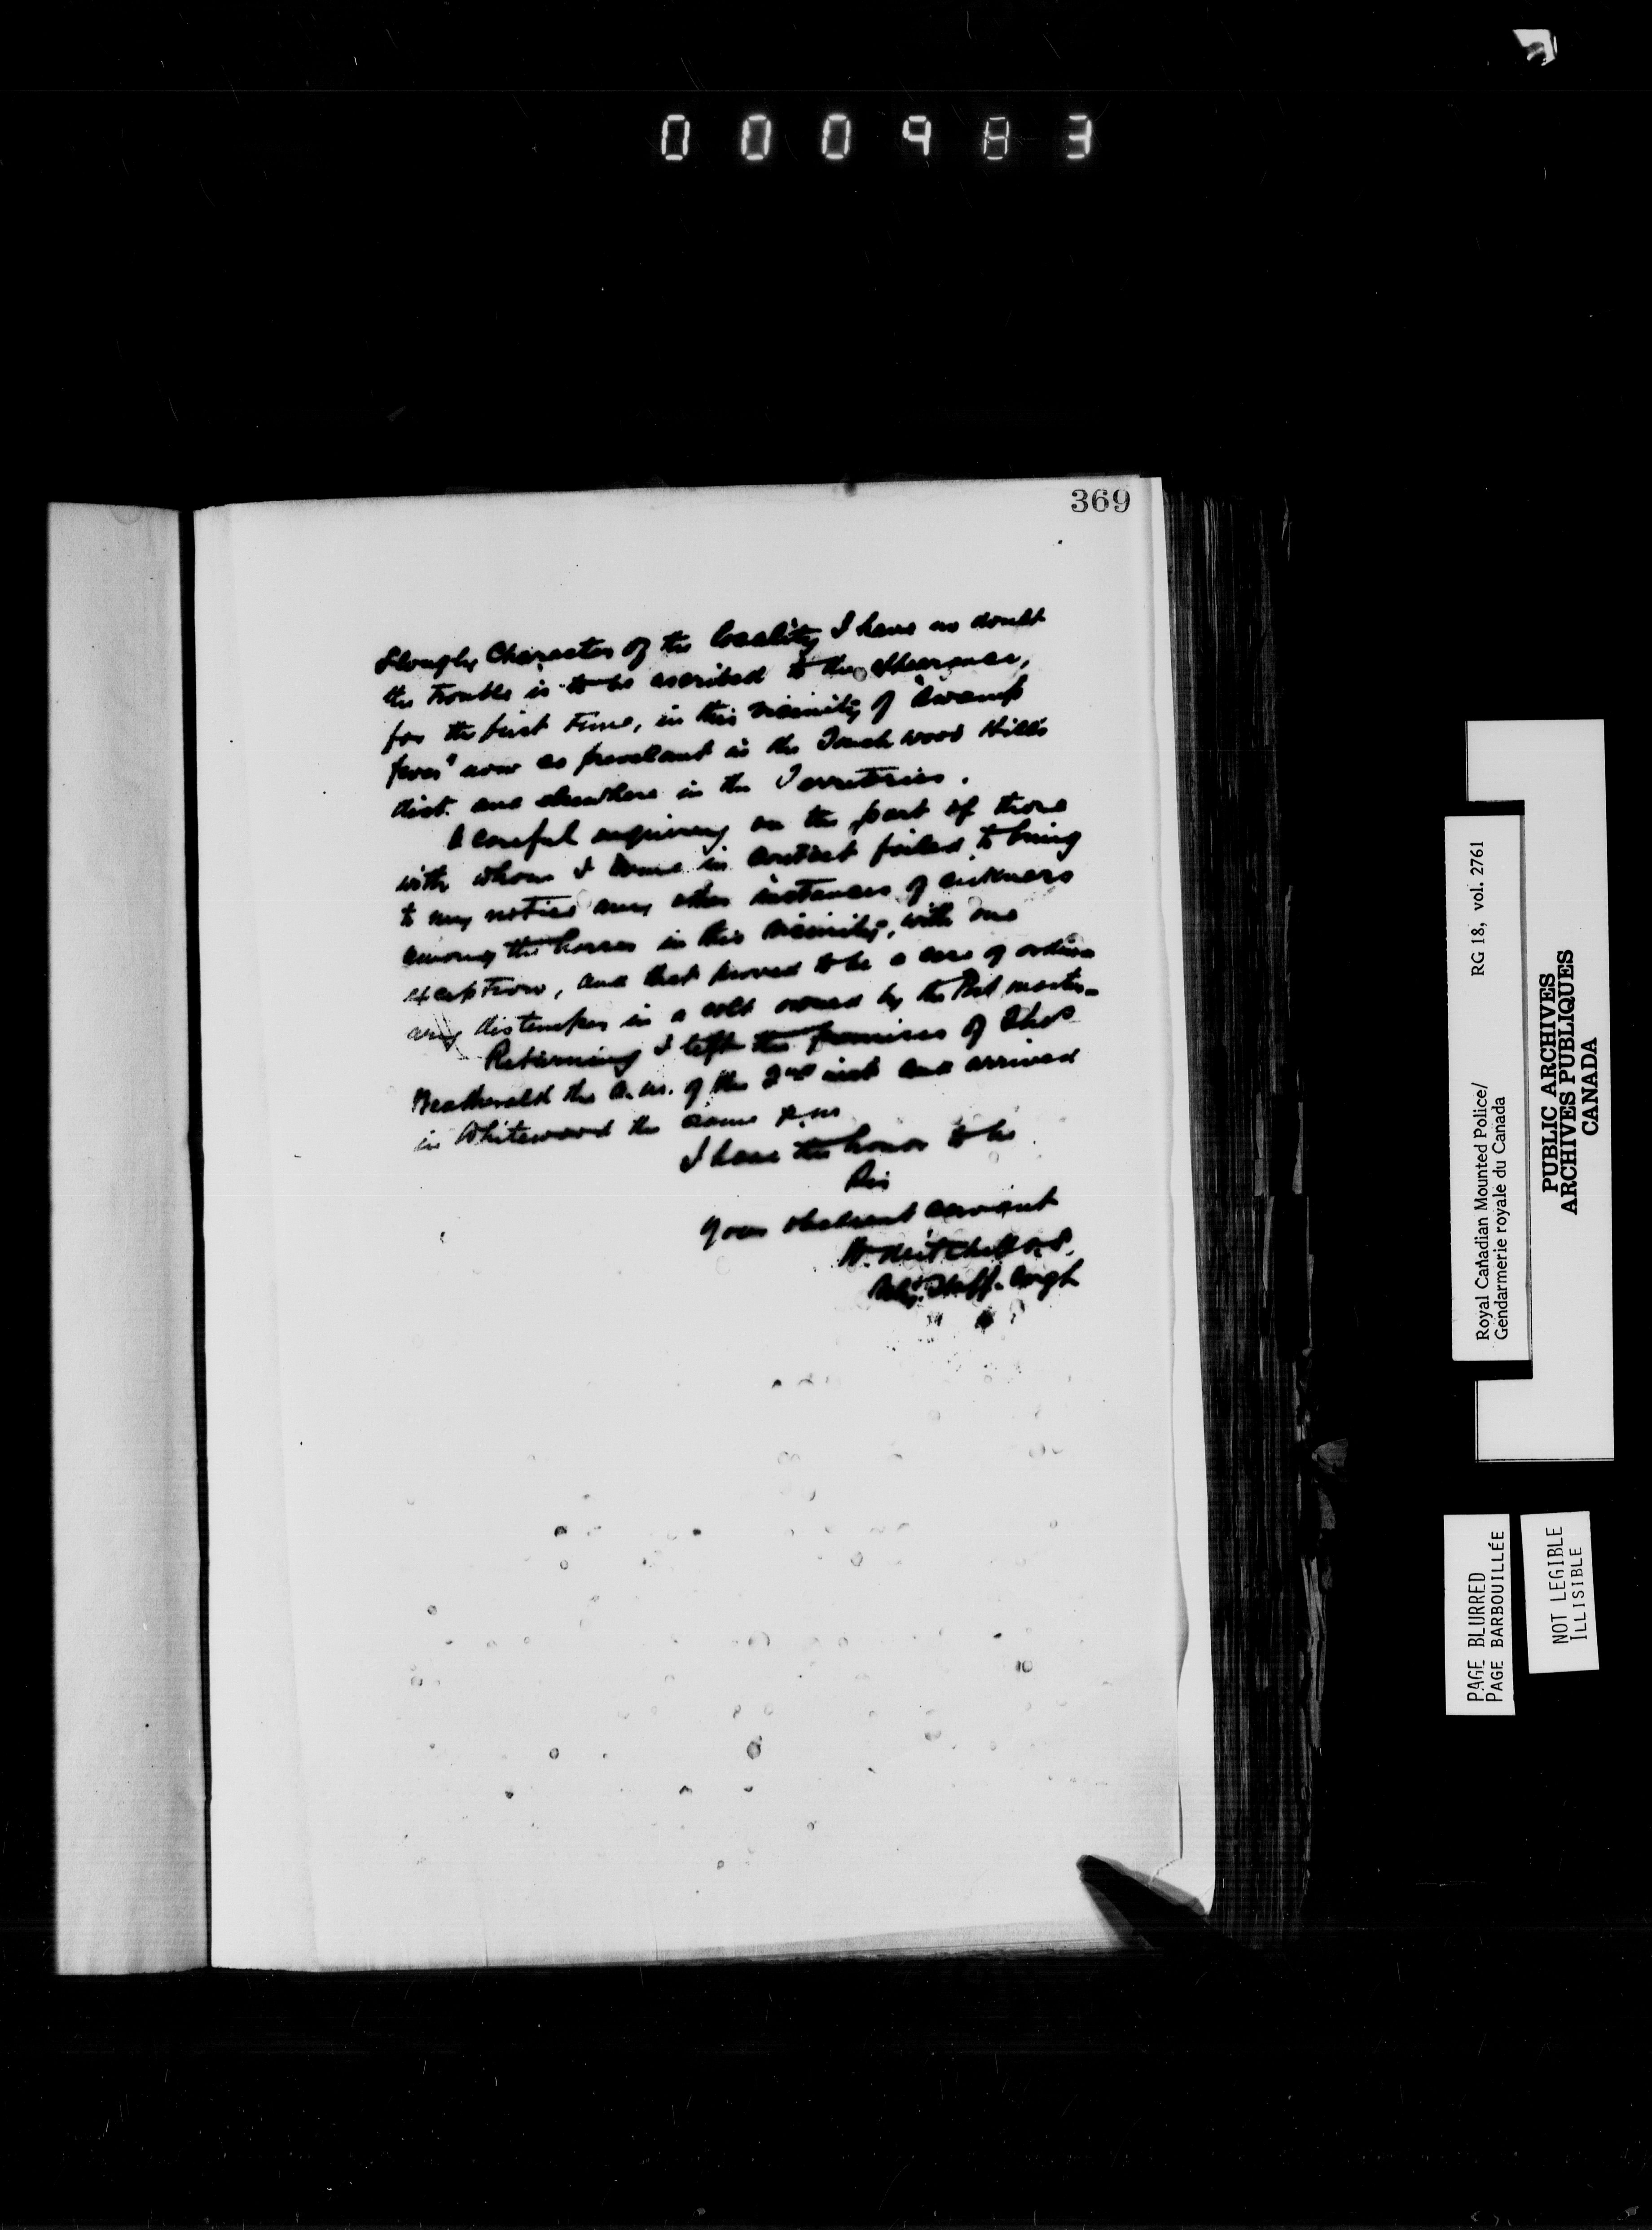 000983
369
Sloughy Character of the locality I have no doubt
the trouble is to be ascribed to the appearance,
for the first time, in this vicinity of "swamp
fever" now so prevelant in the Touchwood Hills
dist. and elsewhere in the Territories.
A careful enquirery on the part of those
with whom I came in contact failed to bring
to my notice any other instances of sickness
among the horses in this vicinity, with one
exception, and that proved to be a case of ordin
ary distemper in a colt owned by the Post master.
Returning I left the premises of Thos
Weatherald the a.m. of the 2nd inst and arrived
in Whitewood the same p.m
I have the honor to be
Sir
Your obedient servant
W. Mitchell V.S.
Staff. Sergt
RG 18, vol. 2761
Royal Canadian Mounted Police/
Gendarmerie royale du Canada
PUBLIC ARCHIVES
ARCHIVES PUBLIQUES
CANADA
PAGE BLURRED
PAGE BARBOUILLÉE
NOT LEGIBLE
ILLISIBLE